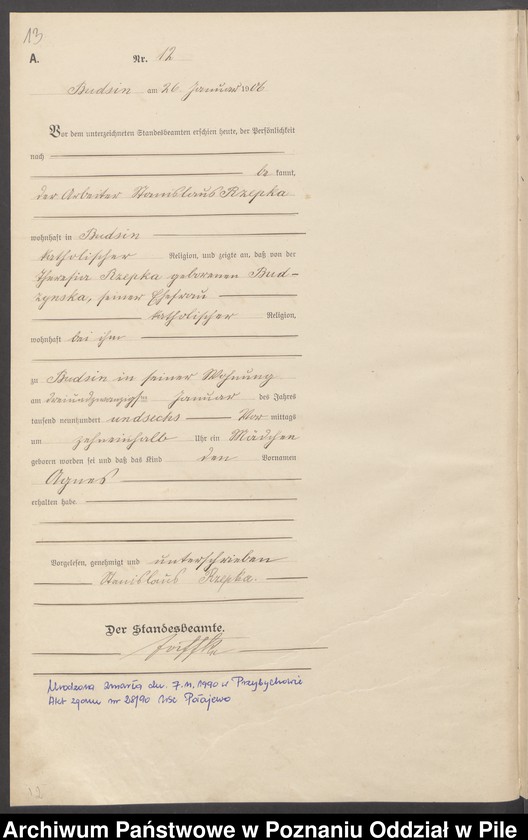 13
A. Nr. 12
Budsin am 26. Januar 1906
Vor dem unterzeichneten Standesbeamten erschien heute, der Persönlichkeit
nach
be kannt,
der Arbeiter Stanislaus Rzepka
wohnhaft in Budsin
katholischer Religion, und zeigte an, daß von der
Theresia Rzepka geborenen Bud-
zynska, seiner Ehefrau
katholischer Religion,
wohnhaft bei ihm
zu Budsin in seiner Wohnung
am dreiundzwanzigsten Januar des Jahres
tausend neunhundert undsechs Vor mittags
um zehneinhalb Uhr ein Mädchen
geboren worden sei und daß das Kind den Vornamen
Agnes
erhalten habe.
Vorgelesen, genehmigt und unterschrieben
Stanislaus Rzepka.
Der Standesbeamte.
Urodzona zmarła dn. 7.11.1990 w Przybychowie
Akt zgonu nr 28/90 USC Połajewo
12
Archiwum Państwowe w Poznaniu Oddział w Pile